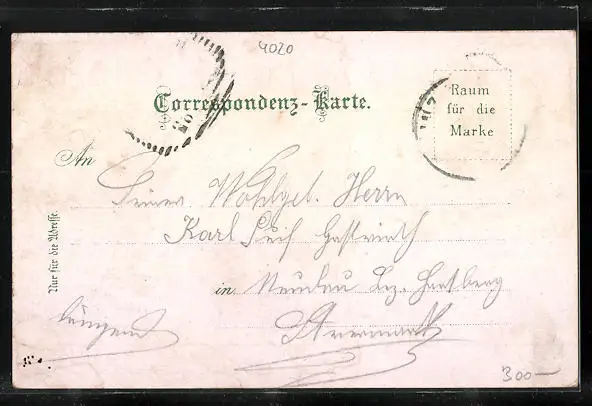 4020
Correspondenz-Karte.
Raum
für die
Marke
An
Seiner Wohlgeb. Herrn
Karl Gastwirth
Nur für die Adresse
in Neudau Bz. Hartberg
Steiermark
300-